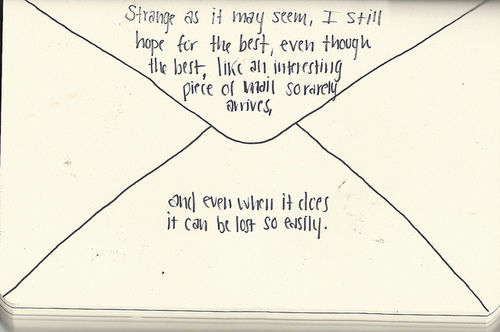 Strange as it may seem, I still
hope for the best, even though
the best, like an interesting
piece of mail so rarely
arrives,
and even when it does
it can be lost so easily.